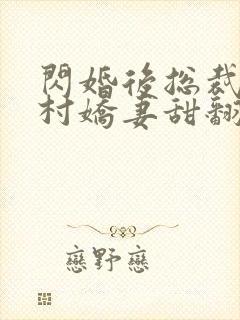 閃婚後總裁
村嬌妻甜翻
戀野戀